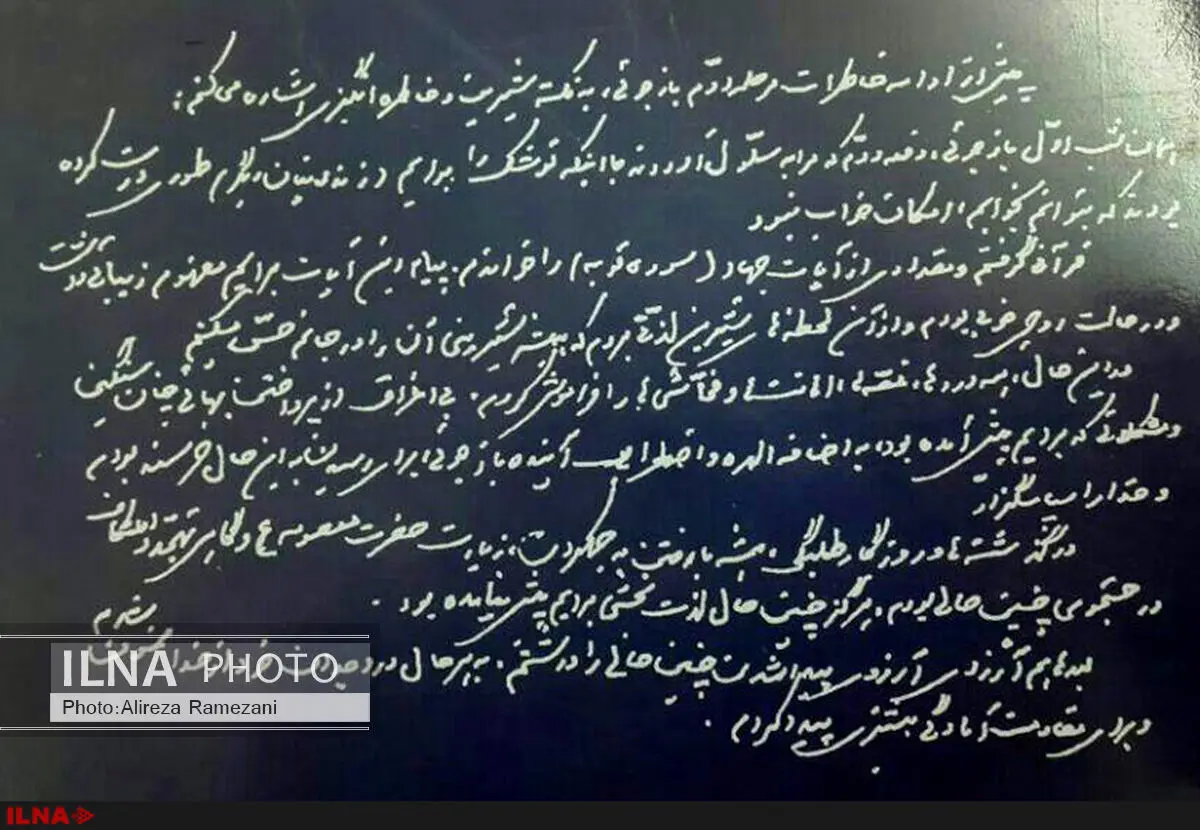 پیش از ادامه خاطرات مرحله دوّم بازجوئی، به نکته شیرین و خاطره انگیزی اشاره می‌کنم:
همان شب اوّل بازجوئی، دفعه دوّم که مرا به سلّول آوردند با اینکه توشک را برایم در زندان طوری درست کرده
بودند که بتوانم بخوابم، امکان خواب نبود
قرآن گرفتم و مقداری از آیات جهاد (سوره توبه) را خواندم. پیام این آیات برایم مفهوم زیبائی داشت
و در حالت روحی خوبی بودم و از آن لحظه‌ها شیرین لذّتی بردم که همیشه شیرینی آن را در جانم حسّ میکنم
در این حال، همه دردها، غصّه‌ها، اهانت‌ها و فحّاشی‌ها را فراموش کردم. بی اغراق از پرداختن بهائی چنان سنگین
و مشکلاتی که برایم پیش آمده بود، به اضافه دلهره و اضطراب آینده بازجوئی، برای رسیدن به این حال خرسند بودم
و خدا را سپاسگزار
در گذشته‌ها و روزگار طلبگی، همیشه با رفتن به جمکران، زیارت حضرت معصومه ع و گاهی تهجّد و اعتکاف
در جستجوی چنین حالی بودم، هرگز چنین حال لذت بخشی برایم پیش نیامده بود.
بعدها هم آرزوی پیدا شدن چنین حالی را داشتم. به هر حال درد
شدم
و برای مقاومت آمادگی بیشتری پیدا کردم.
ILNA PHOTO
Photo:Alireza Ramezani
ILNA